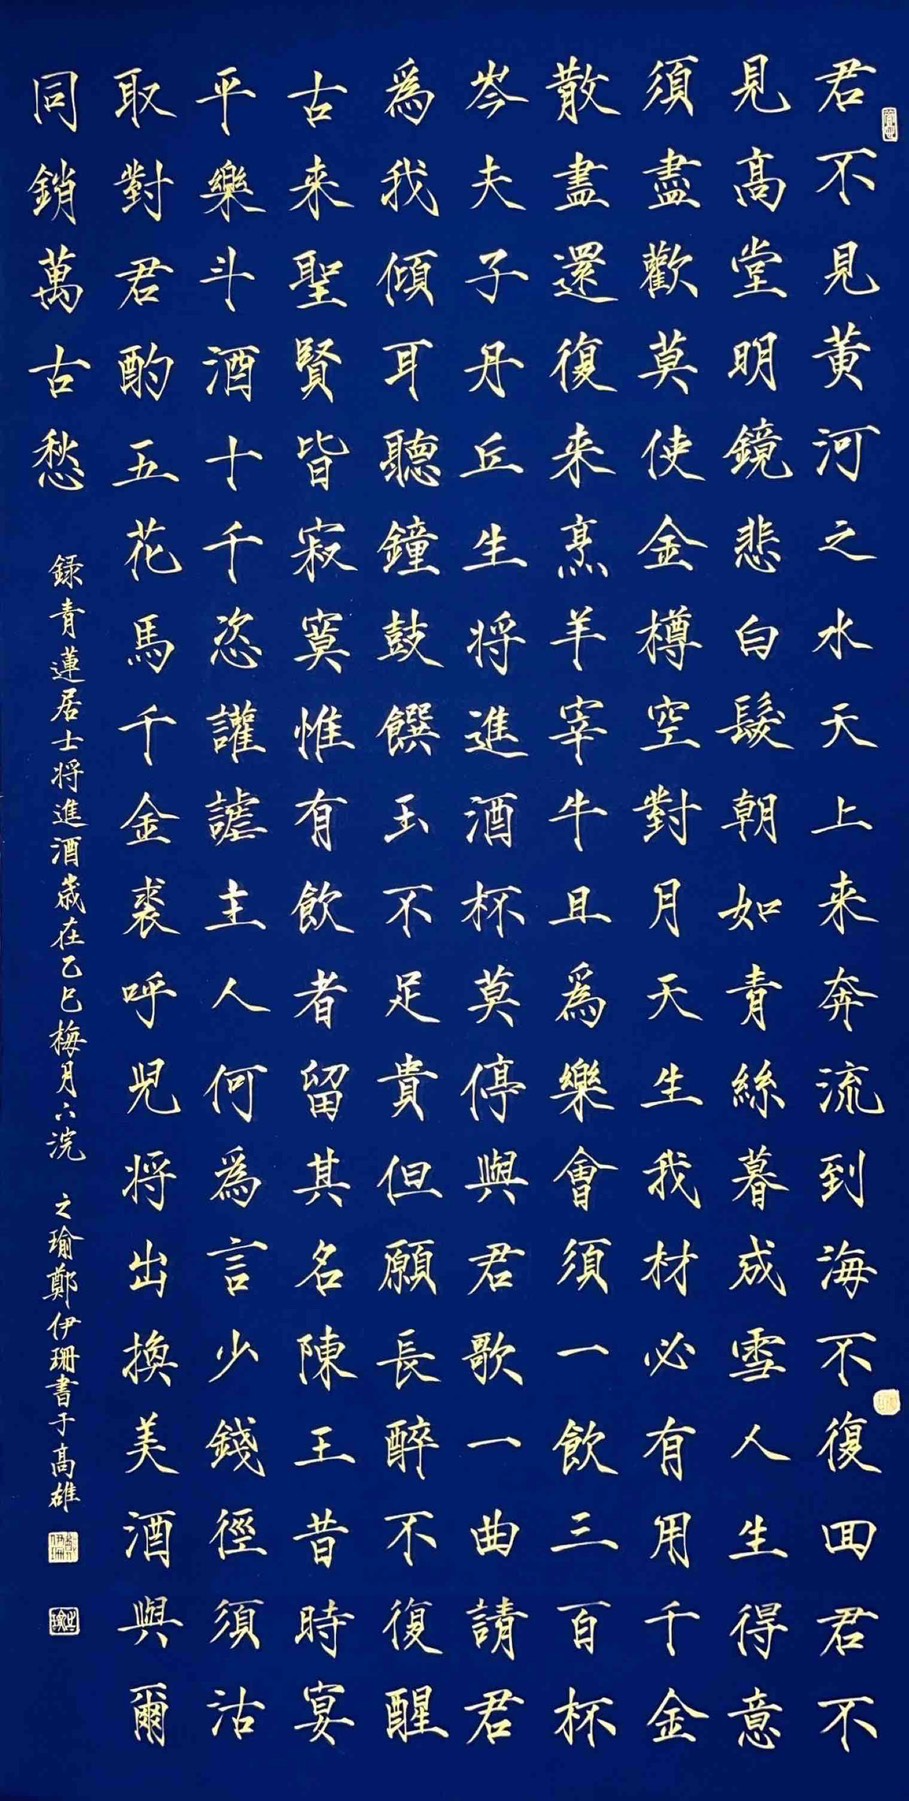 君不見黄河之水天上来奔流到海不復回君不
見高堂明鏡悲白髮朝如青絲暮成雪人生得意
須盡歡莫使金樽空對月天生我材必有用千金
散盡還復来烹羊宰牛且爲樂會須一飲三百杯
岑夫子丹丘生将進酒杯莫停與君歌一曲請君
爲我傾耳聽鐘鼓饌玉不足貴但願長醉不復醒
古来聖賢皆寂寞惟有飲者留其名陳王昔時宴
平樂斗酒十千恣讙謔主人何爲言少錢徑須沽
取對君酌五花馬千金裘呼児将出換美酒與爾
同銷萬古愁
録青蓮居士将進酒歲在乙巳梅月六浣 之瑜鄭伊珊書于高雄